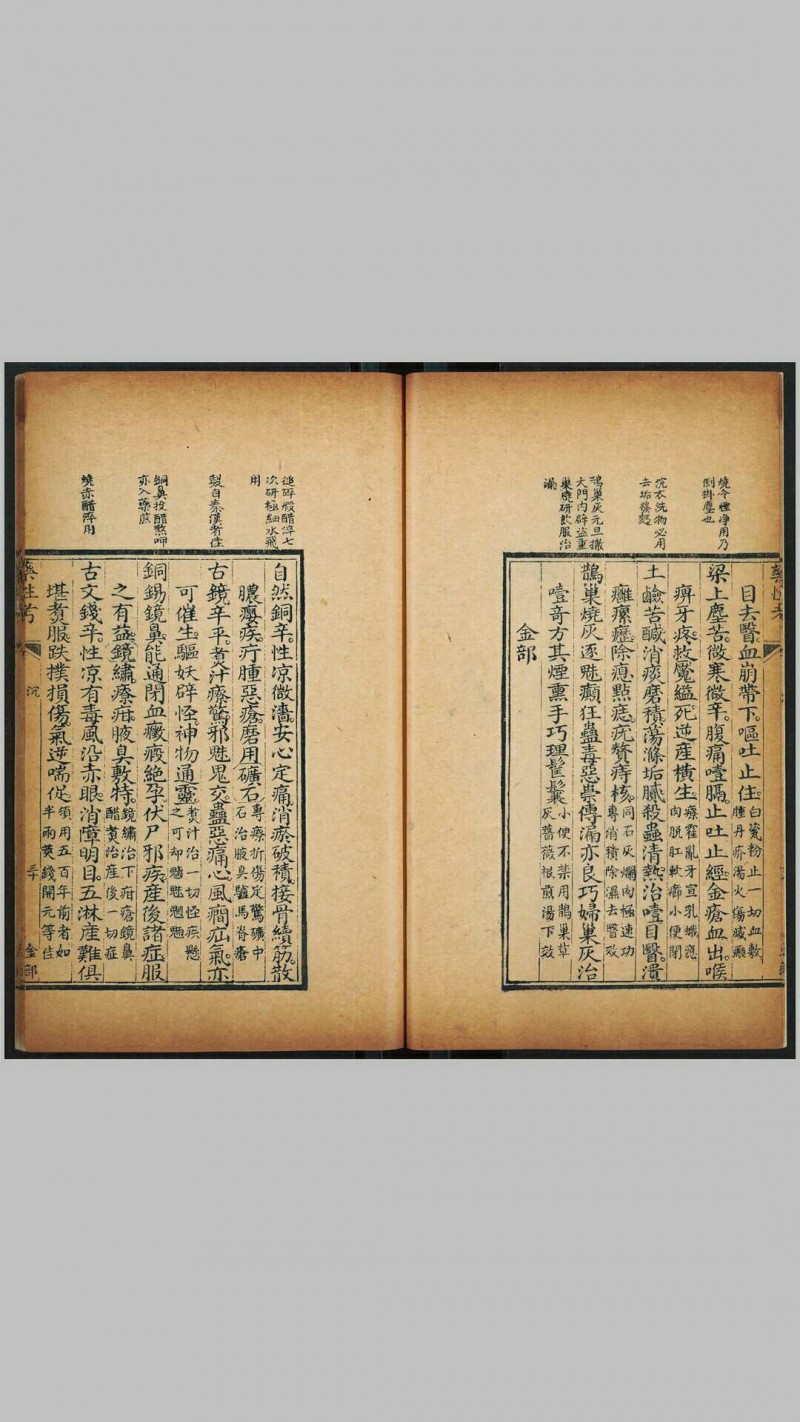 燒令煙淨用乃
倒掛塵也
浣衣洗物必用
去垢發麪
鵲巢灰元旦撒
大門內辟盜重
巢燒研飲服治
漏
目去翳血崩帶下嘔吐止住白瓷粉止一切血敷
腫丹疥湯火傷滅瘢
梁上塵苦微寒微辛腹痛噎膈止吐止經金瘡血出喉
痹牙疼救魘縊死逆産橫生療霍亂牙宣乳蛾應
肉脫肛軟癤小便閉
土鹼苦鹹消痰磨積蕩滌垢膩殺蟲清熱治噎目翳潰
癰瘰癧除瘜點痣疣贅痔核同石灰爛肉極速功
專消積除濕去翳效
鵲巢燒灰逐魅癲狂蠱毒惡祟傳漏亦良巧婦巢灰治
噎奇方其煙熏手巧理髻鬟小便不禁用鵲巢草
灰薔薇根煎湯下效
金部
火煅醋淬七
次研極細水飛
用
製自秦漢者佳
銅鼻投醋熬呷
亦入藥煎
燒赤醋淬用
自然銅辛性凉微濇安心定痛消瘀破積接骨續筋散
膿癭疾疔腫惡瘡磨用礦石專療折傷定驚礦中
石治腋臭驢馬脊瘡
古鏡辛平煮汁療驚邪魅鬼交蠱惡痛心風癎疝氣亦
可催生驅妖辟怪神物通靈煮汁治一切怪疾懸
之可却魑魅魍魎
銅錫鏡鼻能通閉血癥瘕絕孕伏尸邪疾産後諸症服
之有益鏡繡療疳腋臭敷特鏡繡治下疳瘡鏡鼻
醋煮治産後一切症
古文錢辛性凉有毒風沿赤眼消障明目五淋産難俱
堪煮服跌撲損傷氣逆喘促須用五百年前者如
半兩莢錢開元等佳
藥性考
沉
三十
金部